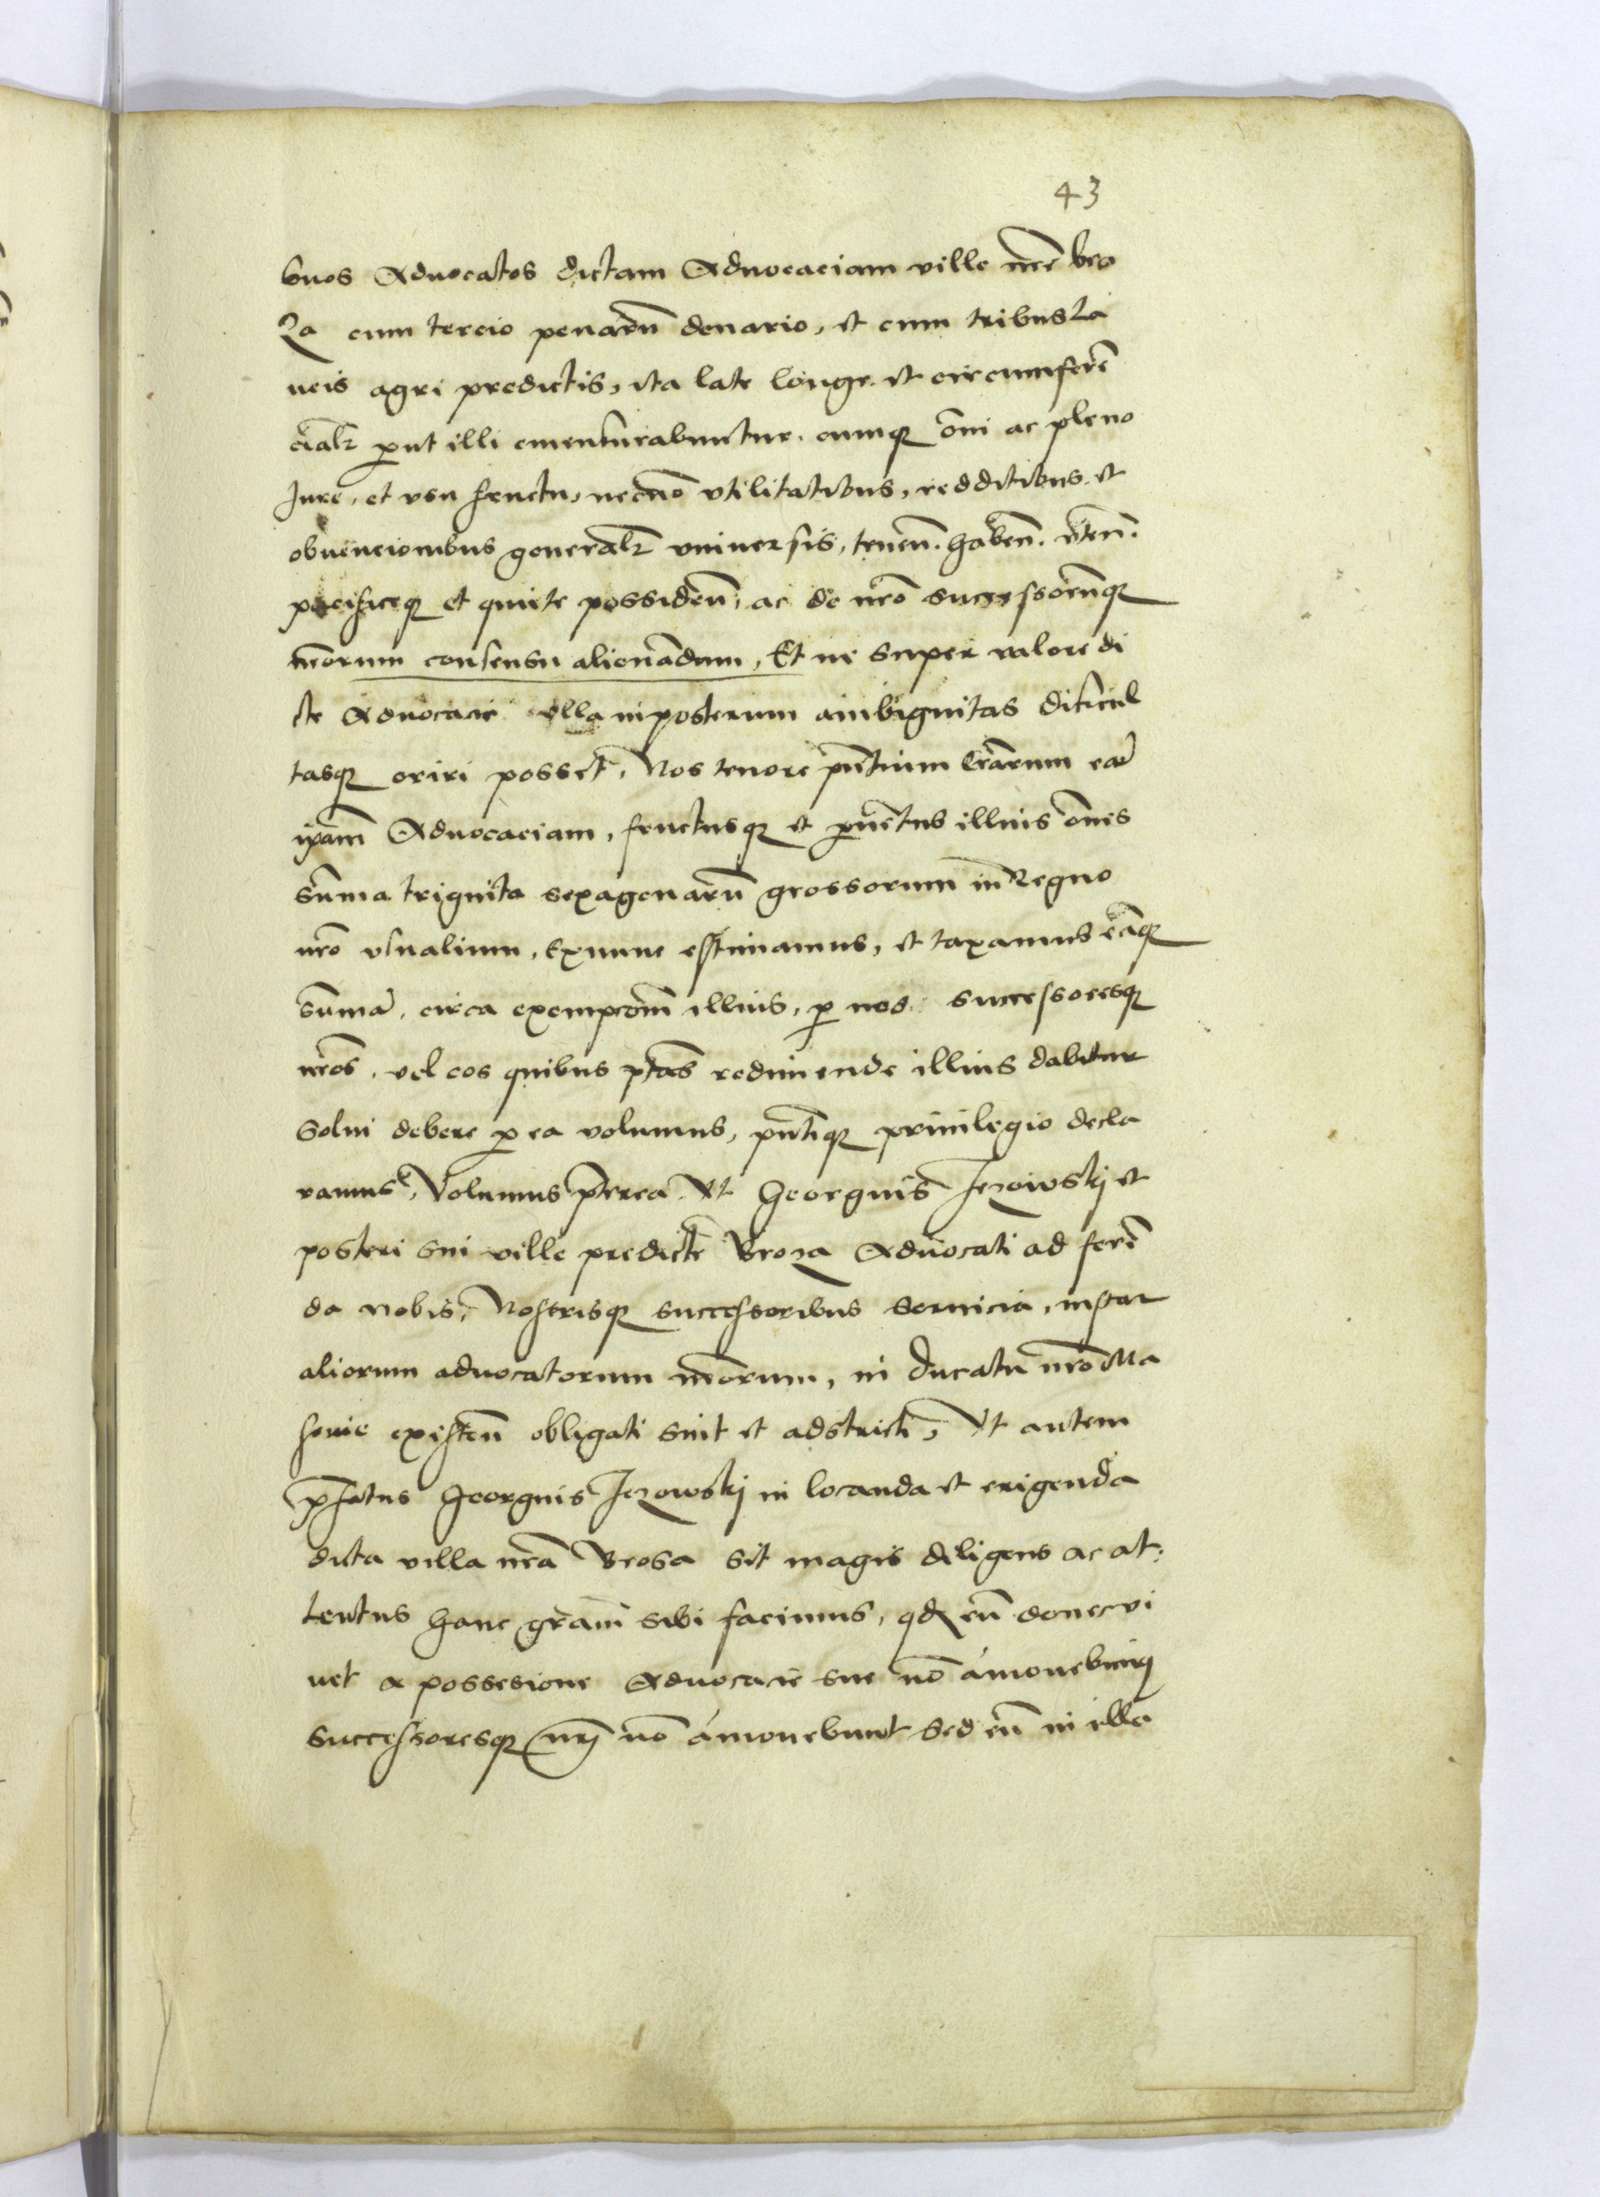 43
buos Aduocatos dictam Aduocaciam ville nr̃e bro
za cum tercio penarũ denario, et cum tribus La
neis agri predictis, ita late longe et circumferẽ
cialr̃ put illi emensurabuntur. cumq; õni ac pleno
Jure, et vsu fructu, necnõ vtilitatibus, redditibus et
obuencionibus generalr̃ vniuersis, tenen̄. haben̄. vten̄.
pacificeq; et quiete possiden̄, ac de nr̃o successorũq;
nr̃orum consensu alienãdam, Et ne super valore di
cte Aduocacie vlla inposterum ambiguitas dificul
tasq; oriri posset, Nos tenore pñtium lr̃arum eã
ip̃am Aduocaciam, fructusq; et puẽtus illius õnes
sũma triginta sexagenarũ grossorum in Regno
nr̃o vsualium, exnunc estimamus, et taxamus eãq;
sũmã, circa exempcõm illius, p nos successoresq;
nr̃os, vel eos quibus ptãs redimende illius dabitur
Solui debere p ea volumus, pñtiq; priuilegio decla
ramus, Volumus p̃terea Vt Georgius Jezowskj et
posteri sui ville predicte Broza Aduocati ad ferẽ
da nobis, Nostrisq; successoribus seruicia, instar
aliorum aduocatorum nr̃orum, in Ducatu nr̃o Ma
souie existeñ obligati sint et adstricti, Vt autem
p̃fatus Georgius Jezowskj in locanda et erigenda
dicta villa nr̃a Brosa sit magis diligens ac at:
tentus hanc gr̃am sibi facimus, qd eũ donec vi
uet a possesione Aduocacie sue nõ ámouebimus
successoresq; nrj nõ ámouebunt sed eũ in illa